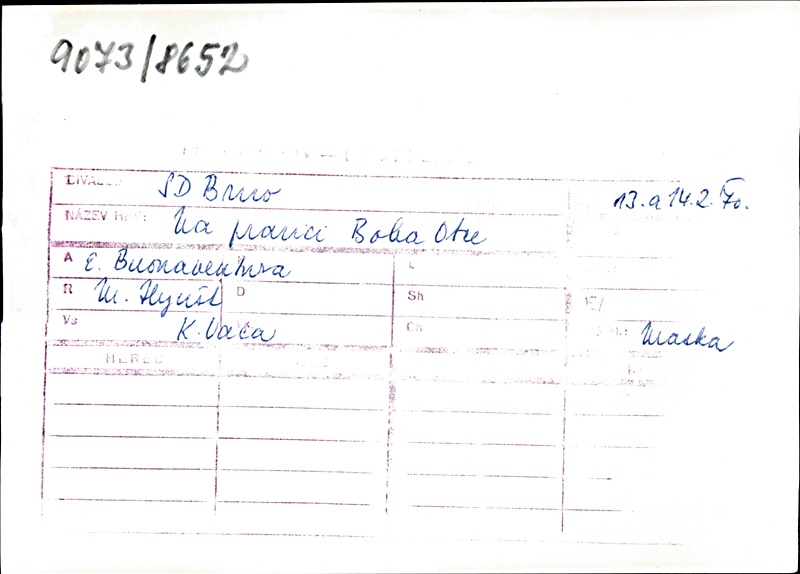 9073/8652
DIVADLO SD Brno 13. a 14. 2. 70.
NÁZEV HRY: Na pravici Boha Otce
A E. Buonaventura L
R M. Hynšt D Sh
Vs K. Vaca Ch Maska
HEREC